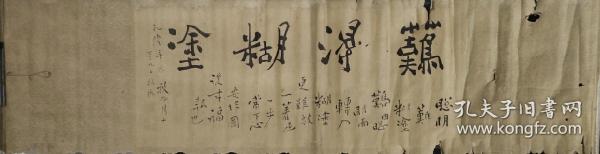 難得糊塗
聰明
難
糊塗
難由聰
明而
轉入
糊塗
更難放
一着退
一步
當下心
安非圖
後來福
報也
孔夫子旧书网
www.kongfz.com